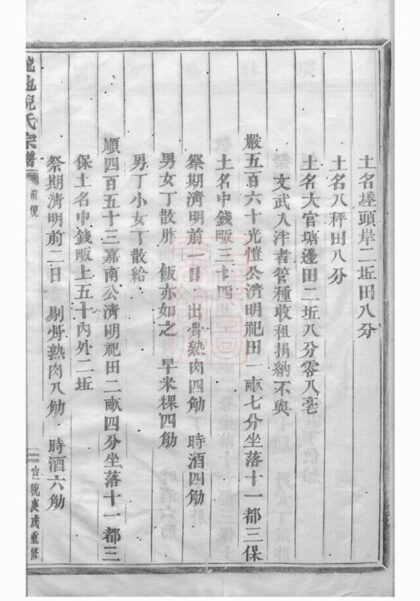 土名塍頭岸二坵田八分
土名八秤田八分
土名大官塘邊田二坵八分零八毫
文武入泮者管種收租捐納不與
嚴五百六十光愷公清明祀田一畝七分坐落十一都三保
土名中錢畈三十四
祭期清明前一日 出骨熱肉四觔 時酒四觔
男女丁散胙 飯亦如之 早米粿四觔
男丁小女丁散給
順四百五十三嘉南公清明祀田二畝四分坐落十一都三
保土名中錢畈上五十內外二坵
祭期清明前二日 剔骨熱肉八觔 時酒六觔
倪氏宗譜
宣統庚戌重修